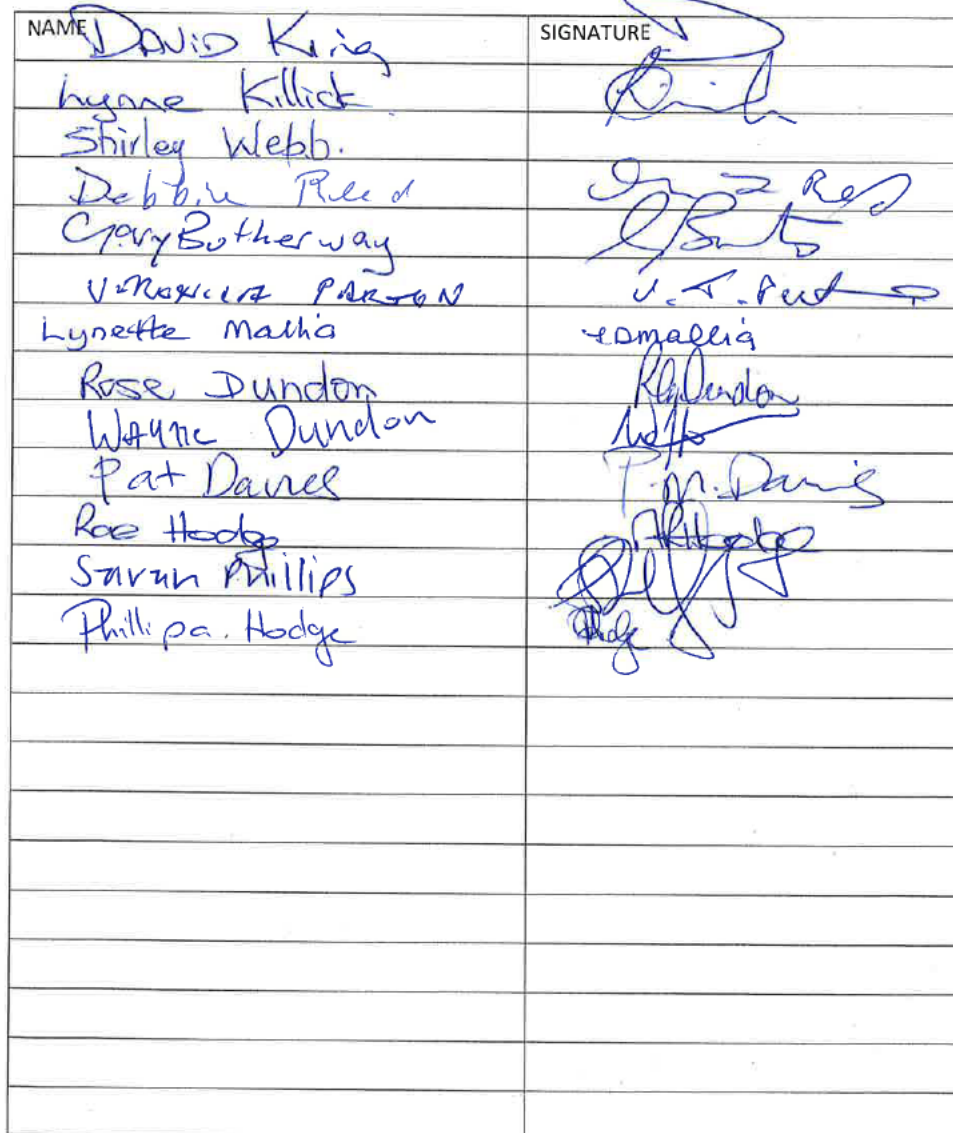 NAME SIGNATURE
David King
Lynne Killick
Shirley Webb.
Debbie Reed Reed
Gary Botherway
PARTON V. T.
Lynette Mallia Mallia
Rose Dundon Dundon
Wayne Dundon
Pat Davies P.M. Davies
Rae Hodge Hodge
Sarah Phillips
Phillipa. Hodge Hodge